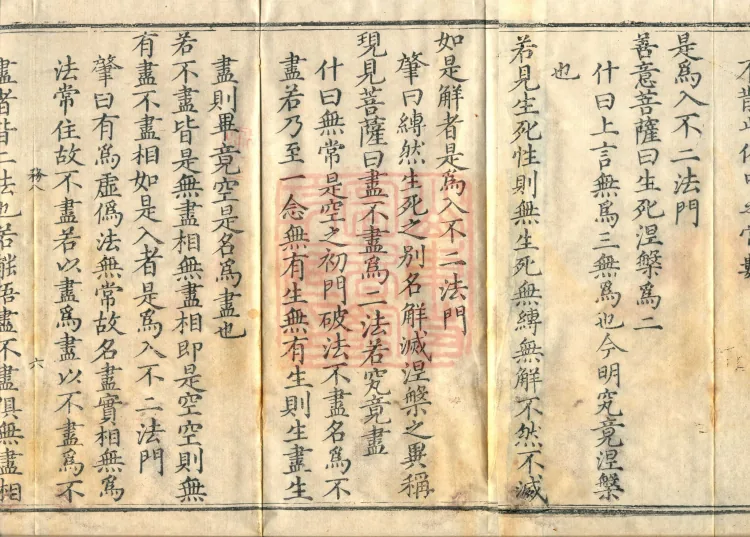 是爲入不二法門
善意菩薩曰生死涅槃爲二
什曰上言無爲三無爲也今明究竟涅槃
也
若見生死性則無生死無縛無解不然不滅
如是解者是爲入不二法門
肇曰縛然生死之别名解滅涅槃之異稱
現見菩薩曰盡不盡爲二法若究竟盡
什曰無常是空之初門破法不盡名爲不
盡若乃至一念無有生無有生則生盡生
盡則畢竟空是名爲盡也
若不盡皆是無盡相無盡相即是空空則無
有盡不盡相如是入者是爲入不二法門
肇曰有爲虛僞法無常故名盡實相無爲
法常住故不盡若以盡爲盡以不盡爲不
務八
六
盡者皆二法也若能悟盡不盡俱無盡相